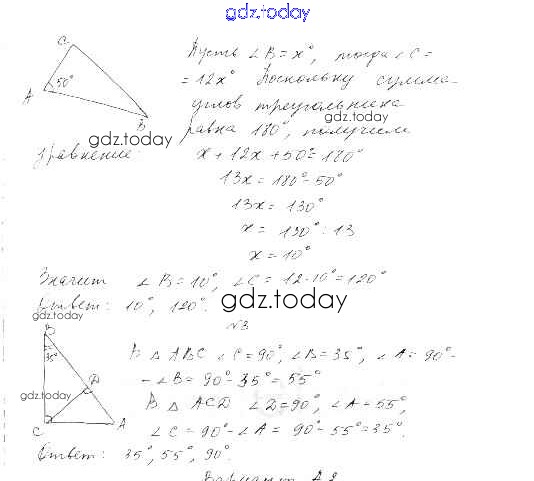 gdz.today
C
50°
A
B
Пусть ∠B=x°, тогда ∠C=
=12x° Поскольку сумма
углов треугольника
gdz.today
равна 180°, получим
gdz.today
уравнение:
x+12x+50°=180°
13x=180°-50°
13x=130°
x=130°:13
x=10°
Значит ∠B=10°, ∠C=12·10°=120°
Ответ: 10°, 120°.
gdz.today
gdz.today
№3
B
35°
D
gdz.today
C
A
В △ABC ∠C=90°, ∠B=35°, ∠A=90°-
-∠B=90°-35°=55°
В △ACD ∠D=90°, ∠A=55°,
∠C=90°-∠A=90°-55°=35°.
Ответ: 35°, 55°, 90°.
Вариант А2